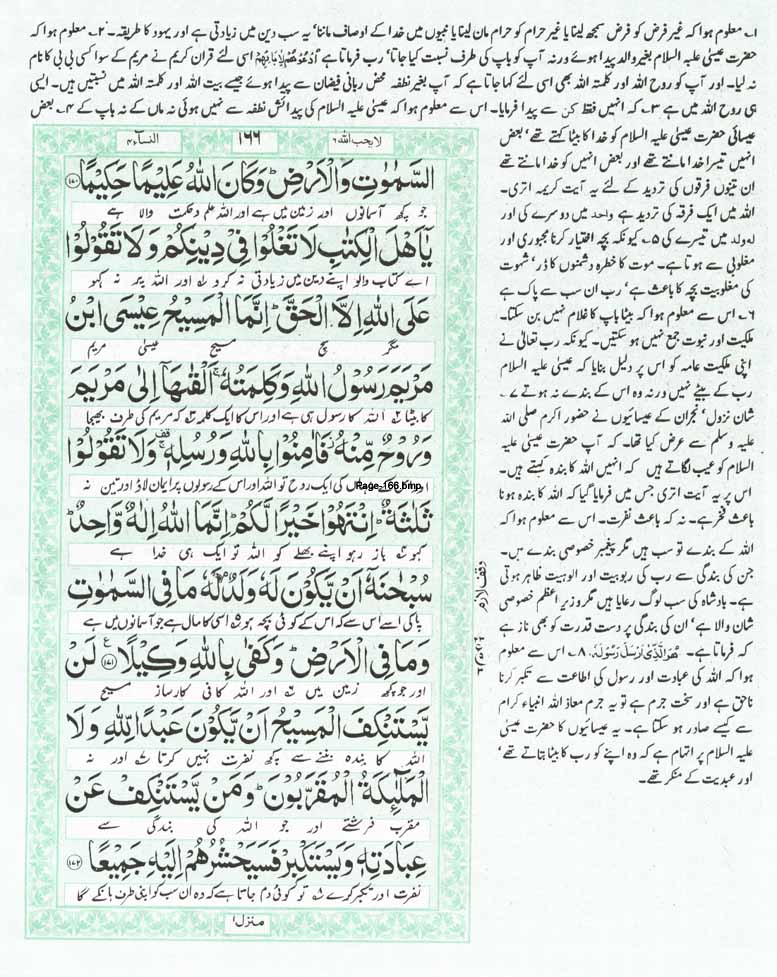 ۱۔ معلوم ہوا کہ غیر فرض کو فرض سمجھ لینا یا غیر حرام کو حرام مان لینا یا نبیوں میں خدا کے اوصاف ماننا' یہ سب دین میں زیادتی ہے اور یہود کا طریقہ۔ ۲۔ معلوم ہوا کہ
حضرت عیسیٰ علیہ السلام بغیر والد پیدا ہوئے ورنہ آپ کو باپ کی طرف نسبت کیا جاتا' رب فرماتا ہے اُدْعُوْهُمْ لِاٰبَآئِهِمْ اسی لئے قرآن کریم نے مریم کے سوا کسی بی بی کا نام
نہ لیا۔ اور آپ کو روح اللہ اور کلمتہ اللہ بھی اسی لئے کہا جاتا ہے کہ آپ بغیر نطفہ محض ربانی فیضان سے پیدا ہوئے جیسے بیت اللہ اور کلمتہ اللہ میں نسبتیں ہیں۔ ایسی
ہی روح اللہ میں ہے ۳۔ کہ انہیں فقط کن سے پیدا فرمایا۔ اس سے معلوم ہوا کہ عیسیٰ علیہ السلام کی پیدائش نطفہ سے نہیں ہوئی نہ ماں کے نہ باپ کے ۴۔ بعض
عیسائی حضرت عیسیٰ علیہ السلام کو خدا کا بیٹا کہتے تھے' بعض
انہیں تیسرا خدا مانتے تھے اور بعض انہیں کو خدا مانتے تھے
ان تینوں فرقوں کی تردید کے لئے یہ آیت کریمہ اتری۔
اللہ میں ایک فرقہ کی تردید ہے واحد میں دوسرے کی اور
لہ ولد میں تیسرے کی ۵۔ کیونکہ بچہ اختیار کرنا مجبوری اور
مغلوبی سے ہوتا ہے۔ موت کا خطرہ دشمنوں کا ڈر' شہوت
کی مغلوبیت بچہ کا باعث ہے' رب ان سب سے پاک ہے
۶۔ اس سے معلوم ہوا کہ بیٹا باپ کا غلام نہیں بن سکتا۔
ملکیت اور نبوت جمع نہیں ہو سکتیں۔ کیونکہ رب تعالیٰ نے
اپنی ملکیت عامہ کو اس پر دلیل بنایا کہ عیسیٰ علیہ السلام
رب کے بیٹے نہیں ورنہ وہ اس کے بندے نہ ہوتے ۷۔
شان نزول' نجران کے عیسائیوں نے حضور اکرم صلی اللہ
علیہ وسلم سے عرض کیا تھا۔ کہ آپ حضرت عیسیٰ علیہ
السلام کو عیب لگاتے ہیں کہ انہیں اللہ کا بندہ کہتے ہیں۔
اس پر یہ آیت اتری جس میں فرمایا گیا کہ اللہ کا بندہ ہونا
باعث فخر ہے۔ نہ کہ باعث نفرت۔ اس سے معلوم ہوا کہ
اللہ کے بندے تو سب ہیں مگر پیغمبر خصوصی بندے ہیں۔
جن کی بندگی سے رب کی ربوبیت اور الوہیت ظاہر ہوتی
ہے۔ بادشاہ کی سب لوگ رعایا ہیں مگر وزیر اعظم خصوصی
شان والا ہے' ان کی بندگی پر دست قدرت کو بھی ناز ہے
کہ فرماتا ہے۔ هُوَ الَّذِيْ اَرْسَلَ رَسُوْلَهٗ ۸۔ اس سے معلوم
ہوا کہ اللہ کی عبادت اور رسول کی اطاعت سے تکبر کرنا
ناحق ہے اور سخت جرم ہے تو یہ جرم معاذ اللہ انبیاء کرام
سے کیسے صادر ہو سکتا ہے۔ یہ عیسائیوں کا حضرت عیسیٰ
علیہ السلام پر اتہام ہے کہ وہ اپنے کو رب کا بیٹا بتاتے تھے'
اور عبدیت کے منکر تھے۔
لا یحب اللہ ۶ ۱۶۶ النساء ۴
السَّمٰوٰتِ وَالْاَرْضِ ؕ وَكَانَ اللّٰهُ عَلِيْمًا حَكِيْمًا ﴿۱۷۰﴾
جو کچھ آسمانوں اور زمین میں ہے اور اللہ علم و حکمت والا ہے
يٰۤاَهْلَ الْكِتٰبِ لَا تَغْلُوْا فِيْ دِيْنِكُمْ وَلَا تَقُوْلُوْا
اے کتاب والو اپنے دین میں زیادتی نہ کرو ۱ اور اللہ پر نہ کہو
عَلَى اللّٰهِ اِلَّا الْحَقَّ ؕ اِنَّمَا الْمَسِيْحُ عِيْسَى ابْنُ
مگر سچ مسیح عیسیٰ مریم
مَرْيَمَ رَسُوْلُ اللّٰهِ وَكَلِمَتُهٗ ۚ اَلْقٰىهَاۤ اِلٰى مَرْيَمَ
کا بیٹا ۲ اللہ کا رسول ہی ہے اور اس کا ایک کلمہ ۳ کہ مریم کی طرف بھیجا
وَرُوْحٌ مِّنْهُ ؗ فَاٰمِنُوْا بِاللّٰهِ وَرُسُلِهٖ ۫ۚ وَلَا تَقُوْلُوْا
Page-166.bmp
کی ایک روح تو اللہ اور اس کے رسولوں پر ایمان لاؤ اور تین نہ
ثَلٰثَةٌ ؕ اِنْتَهُوْا خَيْرًا لَّكُمْ ؕ اِنَّمَا اللّٰهُ اِلٰهٌ وَّاحِدٌ ؕ
کہو ۴ باز رہو اپنے بھلے کو اللہ تو ایک ہی خدا ہے
سُبْحٰنَهٗۤ اَنْ يَّكُوْنَ لَهٗ وَلَدٌ ۘ لَهٗ مَا فِي السَّمٰوٰتِ
پاکی اسے اس سے کہ اس کے کوئی بچہ ہو ۵ اسی کا مال ہے جو آسمانوں میں ہے
وقف لازم
وَمَا فِي الْاَرْضِ ؕ وَكَفٰى بِاللّٰهِ وَكِيْلًا ﴿۱۷۱﴾ لَنْ
اور جو کچھ زمین میں ۶ اور اللہ کافی کارساز مسیح
يَّسْتَنْكِفَ الْمَسِيْحُ اَنْ يَّكُوْنَ عَبْدًا لِّلّٰهِ وَلَا
اللہ کا بندہ بننے سے کچھ نفرت نہیں کرتا ۷ اور نہ
الْمَلٰٓئِكَةُ الْمُقَرَّبُوْنَ ؕ وَمَنْ يَّسْتَنْكِفْ عَنْ
مقرب فرشتے اور جو اللہ کی بندگی سے
عِبَادَتِهٖ وَيَسْتَكْبِرْ فَسَيَحْشُرُهُمْ اِلَيْهِ جَمِيْعًا ﴿۱۷۲﴾
نفرت اور تکبر کرے ۸ تو کوئی دم جاتا ہے کہ وہ ان سب کو اپنی طرف ہانکے گا
منزل ۱